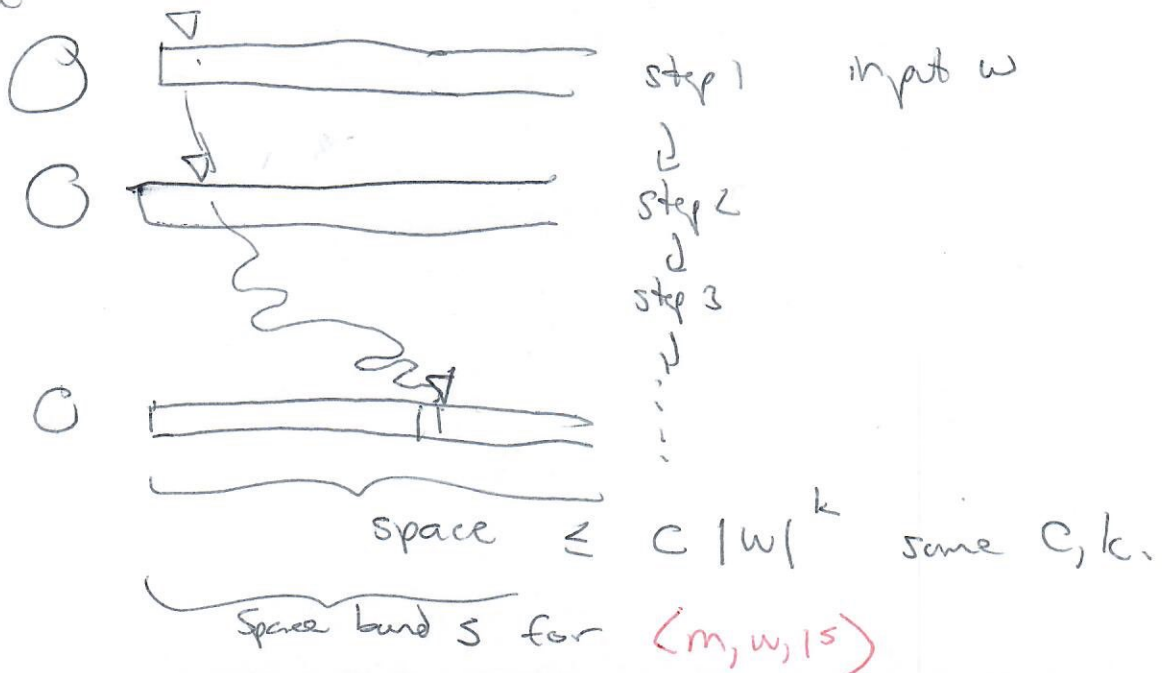 step 1 input w
↓
step 2
↓
step 3
↓
⋮
space ≤ C |w|^k same C, k.
Space bund s for ⟨m, w, 1^s⟩